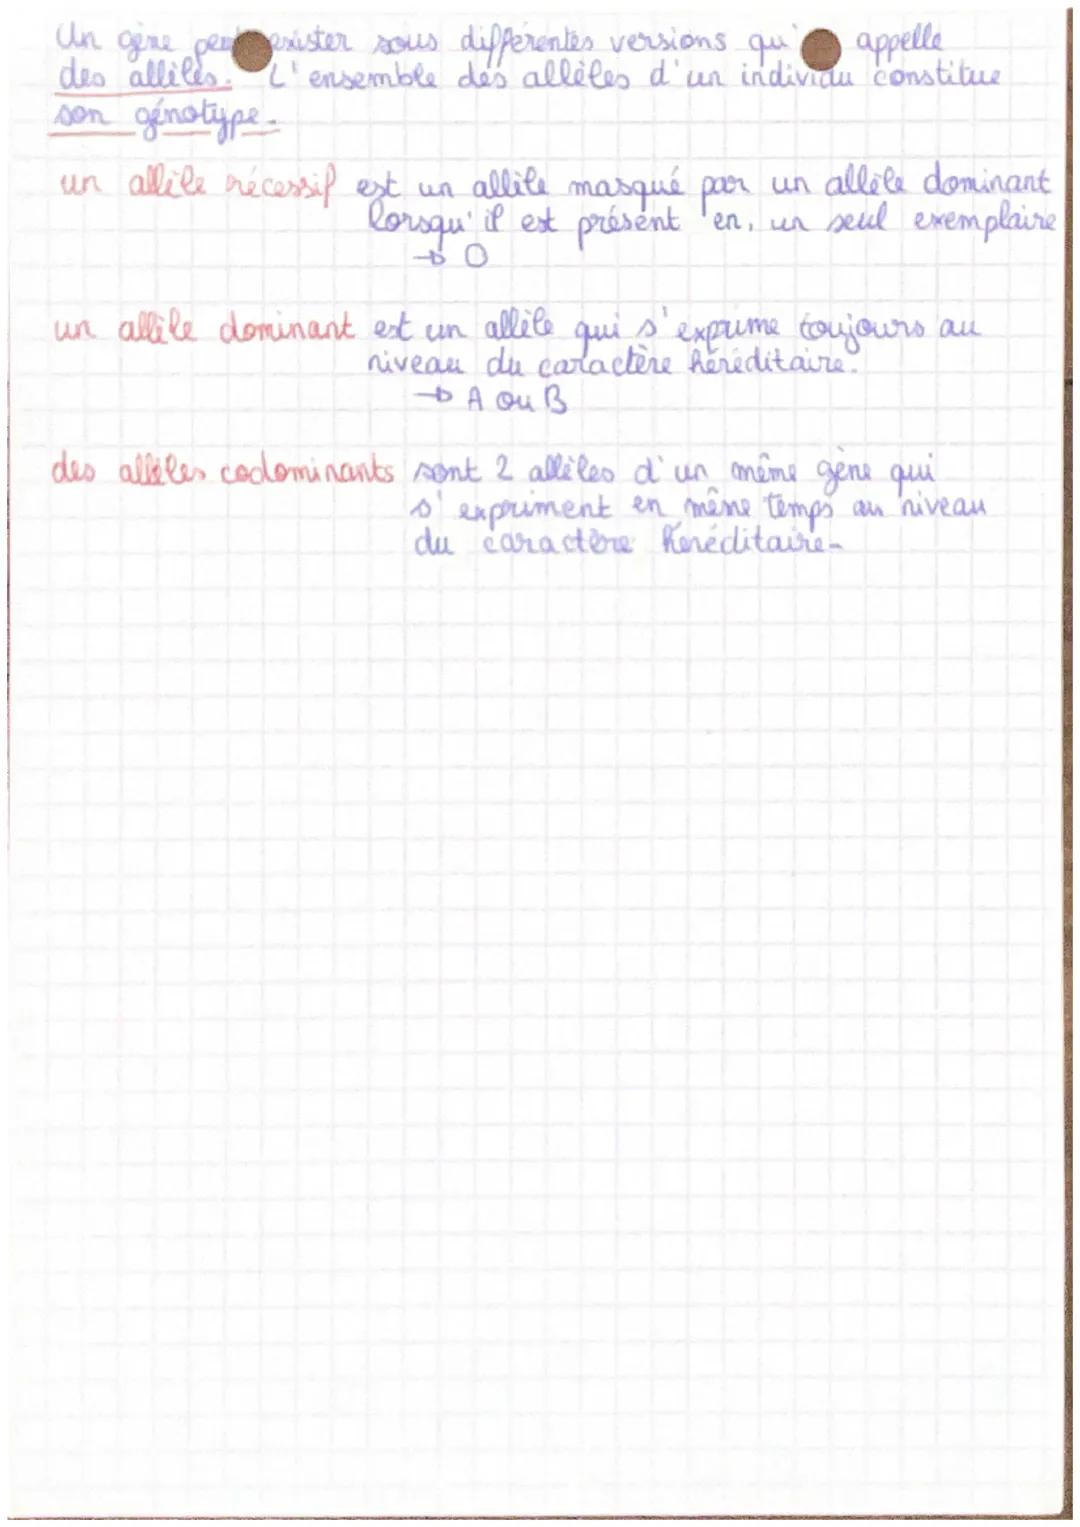 Un gène peut exister sous différentes versions qu' appelle
des allèles. L'ensemble des allèles d'un individu constitue
son génotype.
un allèle récessif est un allèle masqué par un allèle dominant
lorsqu'il est présent en, un seul exemplaire
→ O
un allèle dominant est un allèle qui s'exprime toujours au
niveau du caractère héréditaire.
→ A ou B
des allèles codominants sont 2 allèles d'un même gène qui
s'expriment en même temps au niveau
du caractère héréditaire.